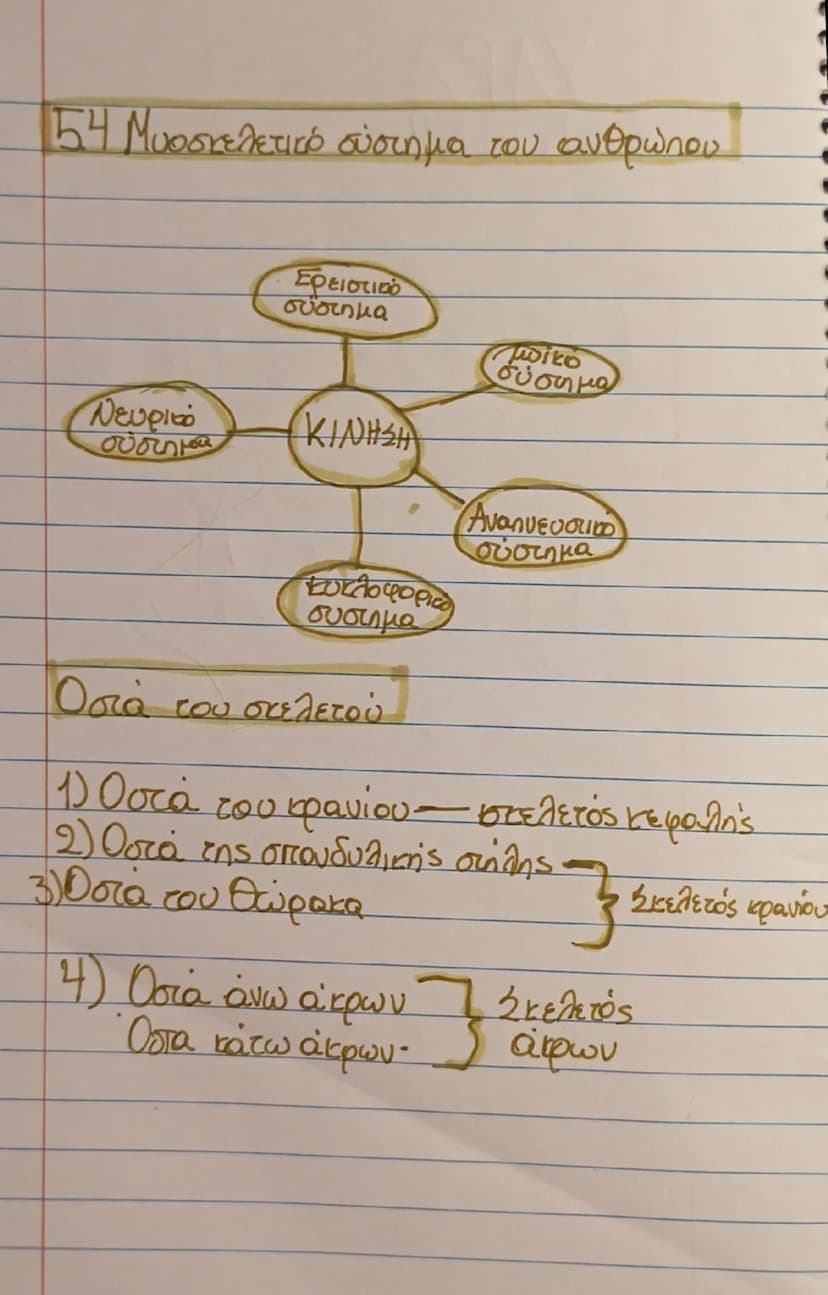 54 Μυοσκελετικό σύστημα του ανθρώπου
Ερειστικό
σύστημα
μϋικό
σύστημα
Νευρικό
σύστημα
ΚΙΝΗΣΗ
Αναπνευστικό
σύστημα
Κυκλοφορικό
συστημα
Οστά του σκελετού
1) Οστά του κρανίου — σκελετός κεφαλής
2) Οστά της σπονδυλικής στήλης
3) Οστά του θώρακα } Σκελετός κρανίου
4) Οστά άνω άκρων } Σκελετός
Οστα κάτω άκρων. άκρων